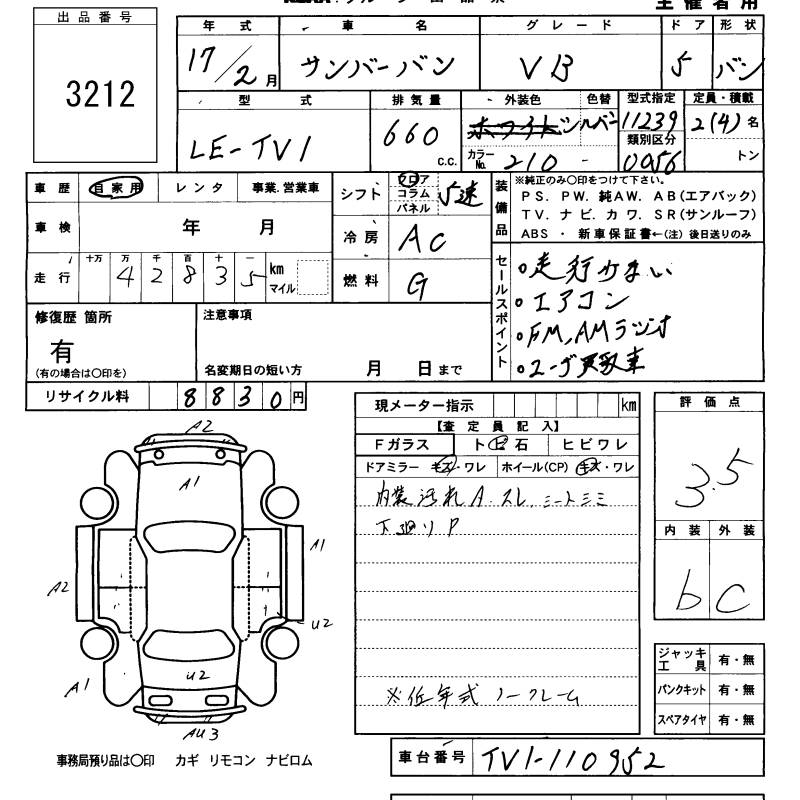 主催者用
出品番号
3212
年式 車名 グレード ドア 形状
17/2月 サンバーバン VB 5 バン
型式 排気量 外装色 色替 型式指定 定員・積載
LE-TV1 660 C.C. ホワイト シルバー 11239 2(4)名
類別区分
カラーNo. 210 - 0056 トン
車歴 自家用 レンタ 事業.営業車
シフト フロア コラム パネル 5速
装備品
※純正のみ○印をつけて下さい。
PS. PW. 純AW. AB(エアバック)
TV. ナビ. カワ. SR(サンルーフ)
ABS ・ 新車保証書←(注)後日送りのみ
車検 年 月
冷房 AC
走行 十万 万 千 百 十 一
4 2 8 3 5 km マイル
燃料 G
セールスポイント
○走行少ない
○エアコン
○FM,AMラジオ
○ユーザ買取車
修復歴 箇所
有
(有の場合は○印を)
注意事項
名変期日の短い方 月 日まで
リサイクル料 8830円
現メーター指示 km
【査定員記入】
Fガラス ト ビ 石 ヒビワレ
ドアミラー キズ・ワレ ホイール(CP) キズ・ワレ
内装汚れA.スレ
下廻りP
※低年式 ノークレーム
評価点
3.5
内装 外装
b C
ジャッキ工具 有・無
パンクキット 有・無
スペアタイヤ 有・無
A2
A1
A1
A2
U2
U2
A1
AU3
事務局預り品は○印 カギ リモコン ナビロム
車台番号 TV1-110952